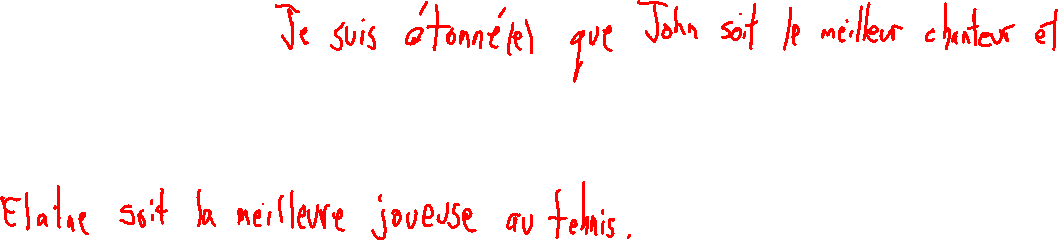 Je suis étonné(e) que John soit le meilleur chanteur et
Elaine soit la meilleure joueuse au tennis.